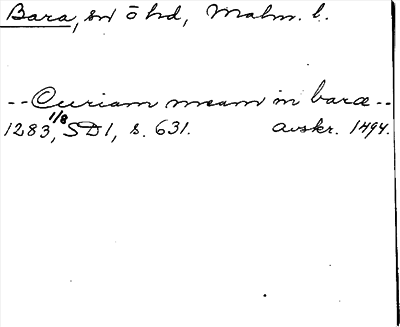 Bara, sn o hd, Malm. l.
-- Curiam meam in baræ --
1283, 1/8 SD 1, s. 631. Avskr. 1494.